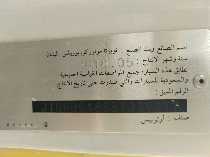 اسم الصانع وبلد الصنع : تويوتا موتور كوربوريشن اليابان
سنة وشهر الإنتاج :
تطابق هذه السيارة جميع المواصفات القياسية الخليجية
والسعودية للسيارات والتي صدرت حتى تاريخ الإنتاج
الرقم المميز :
صنف : أوتوبيس